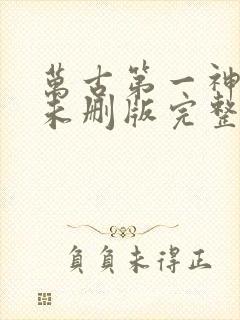 萬古第一神
未刪版完整
負負未得正